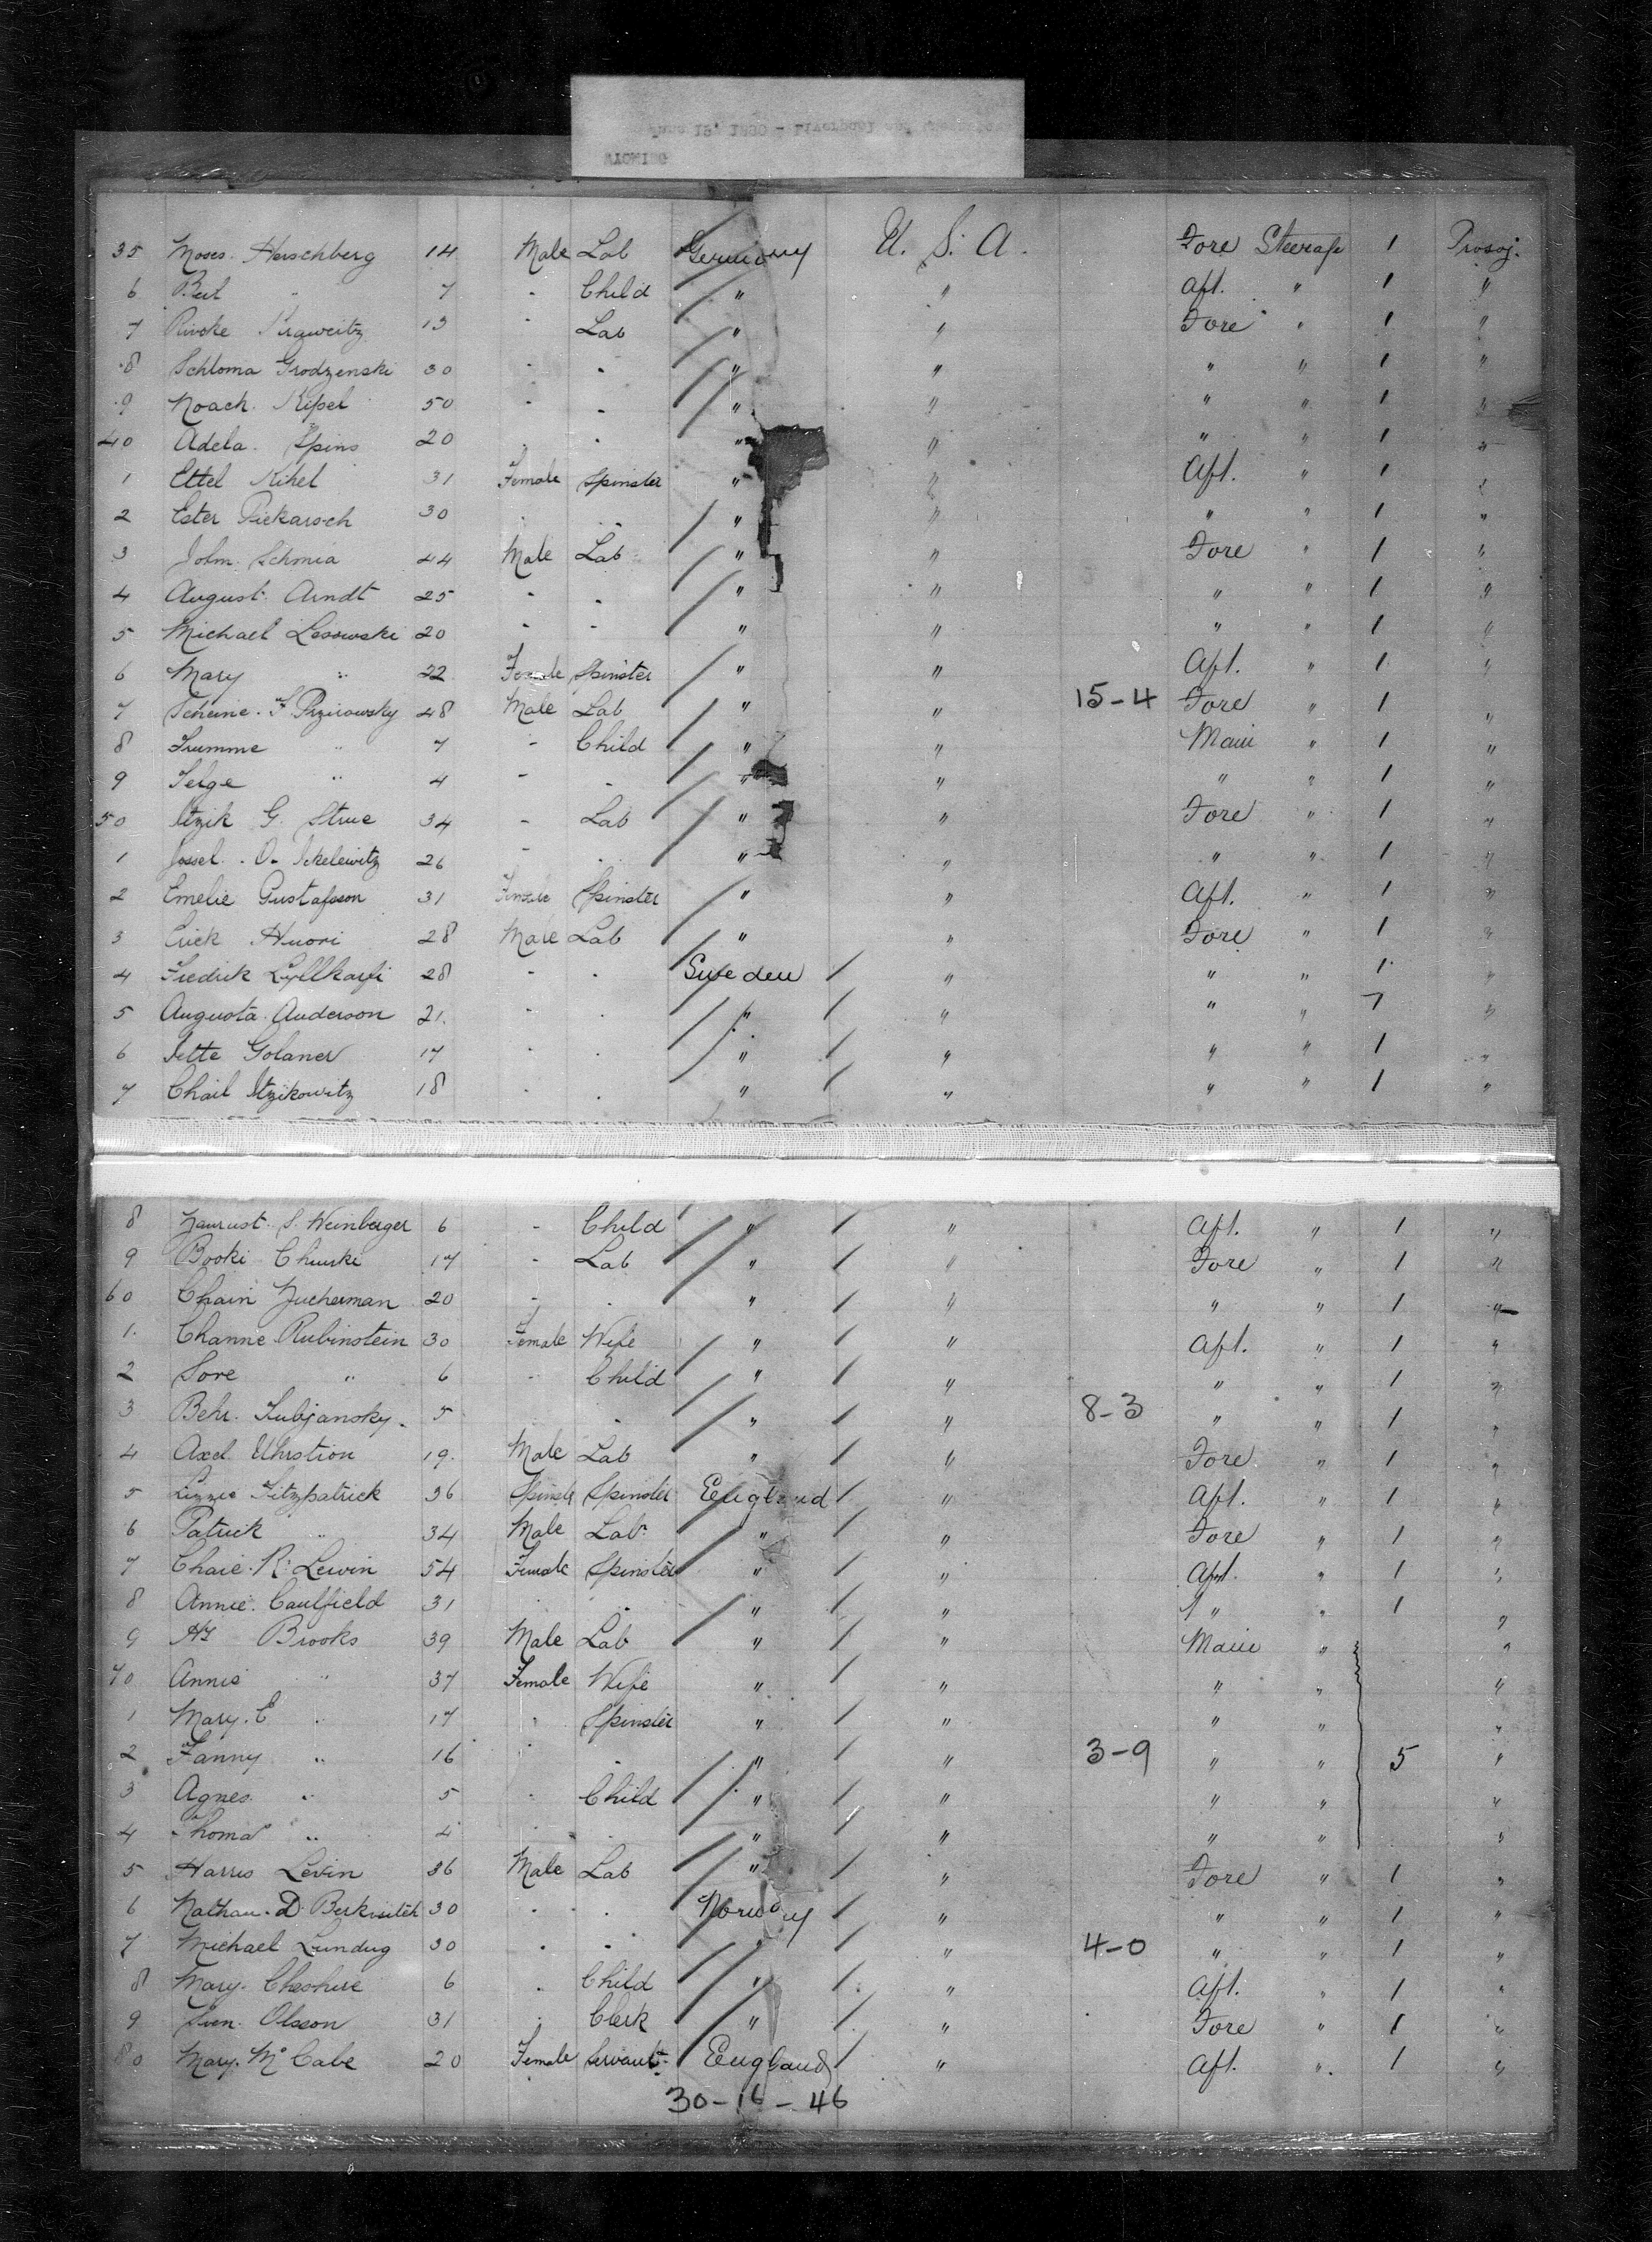 35 Moses. Herschberg 14 Male Lab Germany U. S. A. Fore Steerage 1
6 " 7 - Child " " Aft. " 1 "
7 13 - Lab " " Fore " 1 "
8 Schloma Grodzenski 30 - - " " " " 1 "
9 Noach. 50 - - " " " " 1 "
40 Adela. Spins 20 - - " " " " 1 "
1 Ettel Kihel 31 Female Spinster " " Aft. " 1 "
2 Ester Piekarsch 30 - - " " " " 1 "
3 John. Schmia 44 Male Lab " " Fore " 1 "
4 August. Arndt 25 - - " " " " 1 "
5 Michael Lesowski 20 - - " " " " 1 "
6 Mary " 22 Female Spinster " " Aft. " 1 "
7 48 Male Lab " " 15-4 Fore " 1 "
8 " 7 - Child " " Main " 1 "
9 " 4 - - " " " " 1 "
50 Itzik G. Strue 34 - Lab " " Fore " 1 "
1 Jossel. O. 26 - - " " " " 1 "
2 Emelie Gustafsson 31 Female Spinster " " Aft. " 1 "
3 Erick Huori 28 Male Lab " " Fore " 1 "
4 Fredrik 28 - - Sweden / " " " 1 "
5 Augusta. Anderson 21. - - " / " " " 7 "
6 Jette Golaner 17 - - " / " " " 1 "
7 Chail Itzikowitz 18 - - " / " " " 1 "
8 S. Weinberger 6 - Child " / " Aft. " 1 "
9 Booki 17 - Lab " / " Fore " 1 "
60 Chain Zucherman 20 - - " / " " " 1 "
1. Channe Rubinstein 30 Female Wife " / " Aft. " 1 "
2 Sore " 6 - Child " / " " " 1 "
3 Behr. 5 - - " / " 8-3 " " 1 "
4 Axel 19. Male Lab " / " Fore " 1 "
5 Lizzie Fitzpatrick 36 Spinster Spinster England / " Aft. " 1 "
6 Patrick " 34 Male Lab " / " Fore " 1 "
7 Chaie. R. Lewin 54 Female Spinster " / " Aft. " 1 "
8 Annie. Caulfield 31 - - " / " " " 1 "
9 Hy Brooks 39 Male Lab " / " Main " "
70 Annie " 37 Female Wife " / " " " "
1 Mary. E " 17 - Spinster " / " " " "
2 Fanny " 16 - - " / " 3-9 " " 5 "
3 Agnes. " 5 - Child " / " " " "
4 Thomas " 4 - - " / " " " "
5 Harris Levin 36 Male Lab " / " Fore " 1 "
6 Nathan. D. 30 - - Norway / " " " 1 "
7 Michael 30 - - " / " 4-0 " " 1 "
8 Mary. Cheshire 6 - Child " / " Aft. " 1 "
9 Sven. Olsson 31 - Clerk " / " Fore " 1 "
80 Mary. McCabe 20 Female Servant England / " Aft. " 1 "
30-16-46